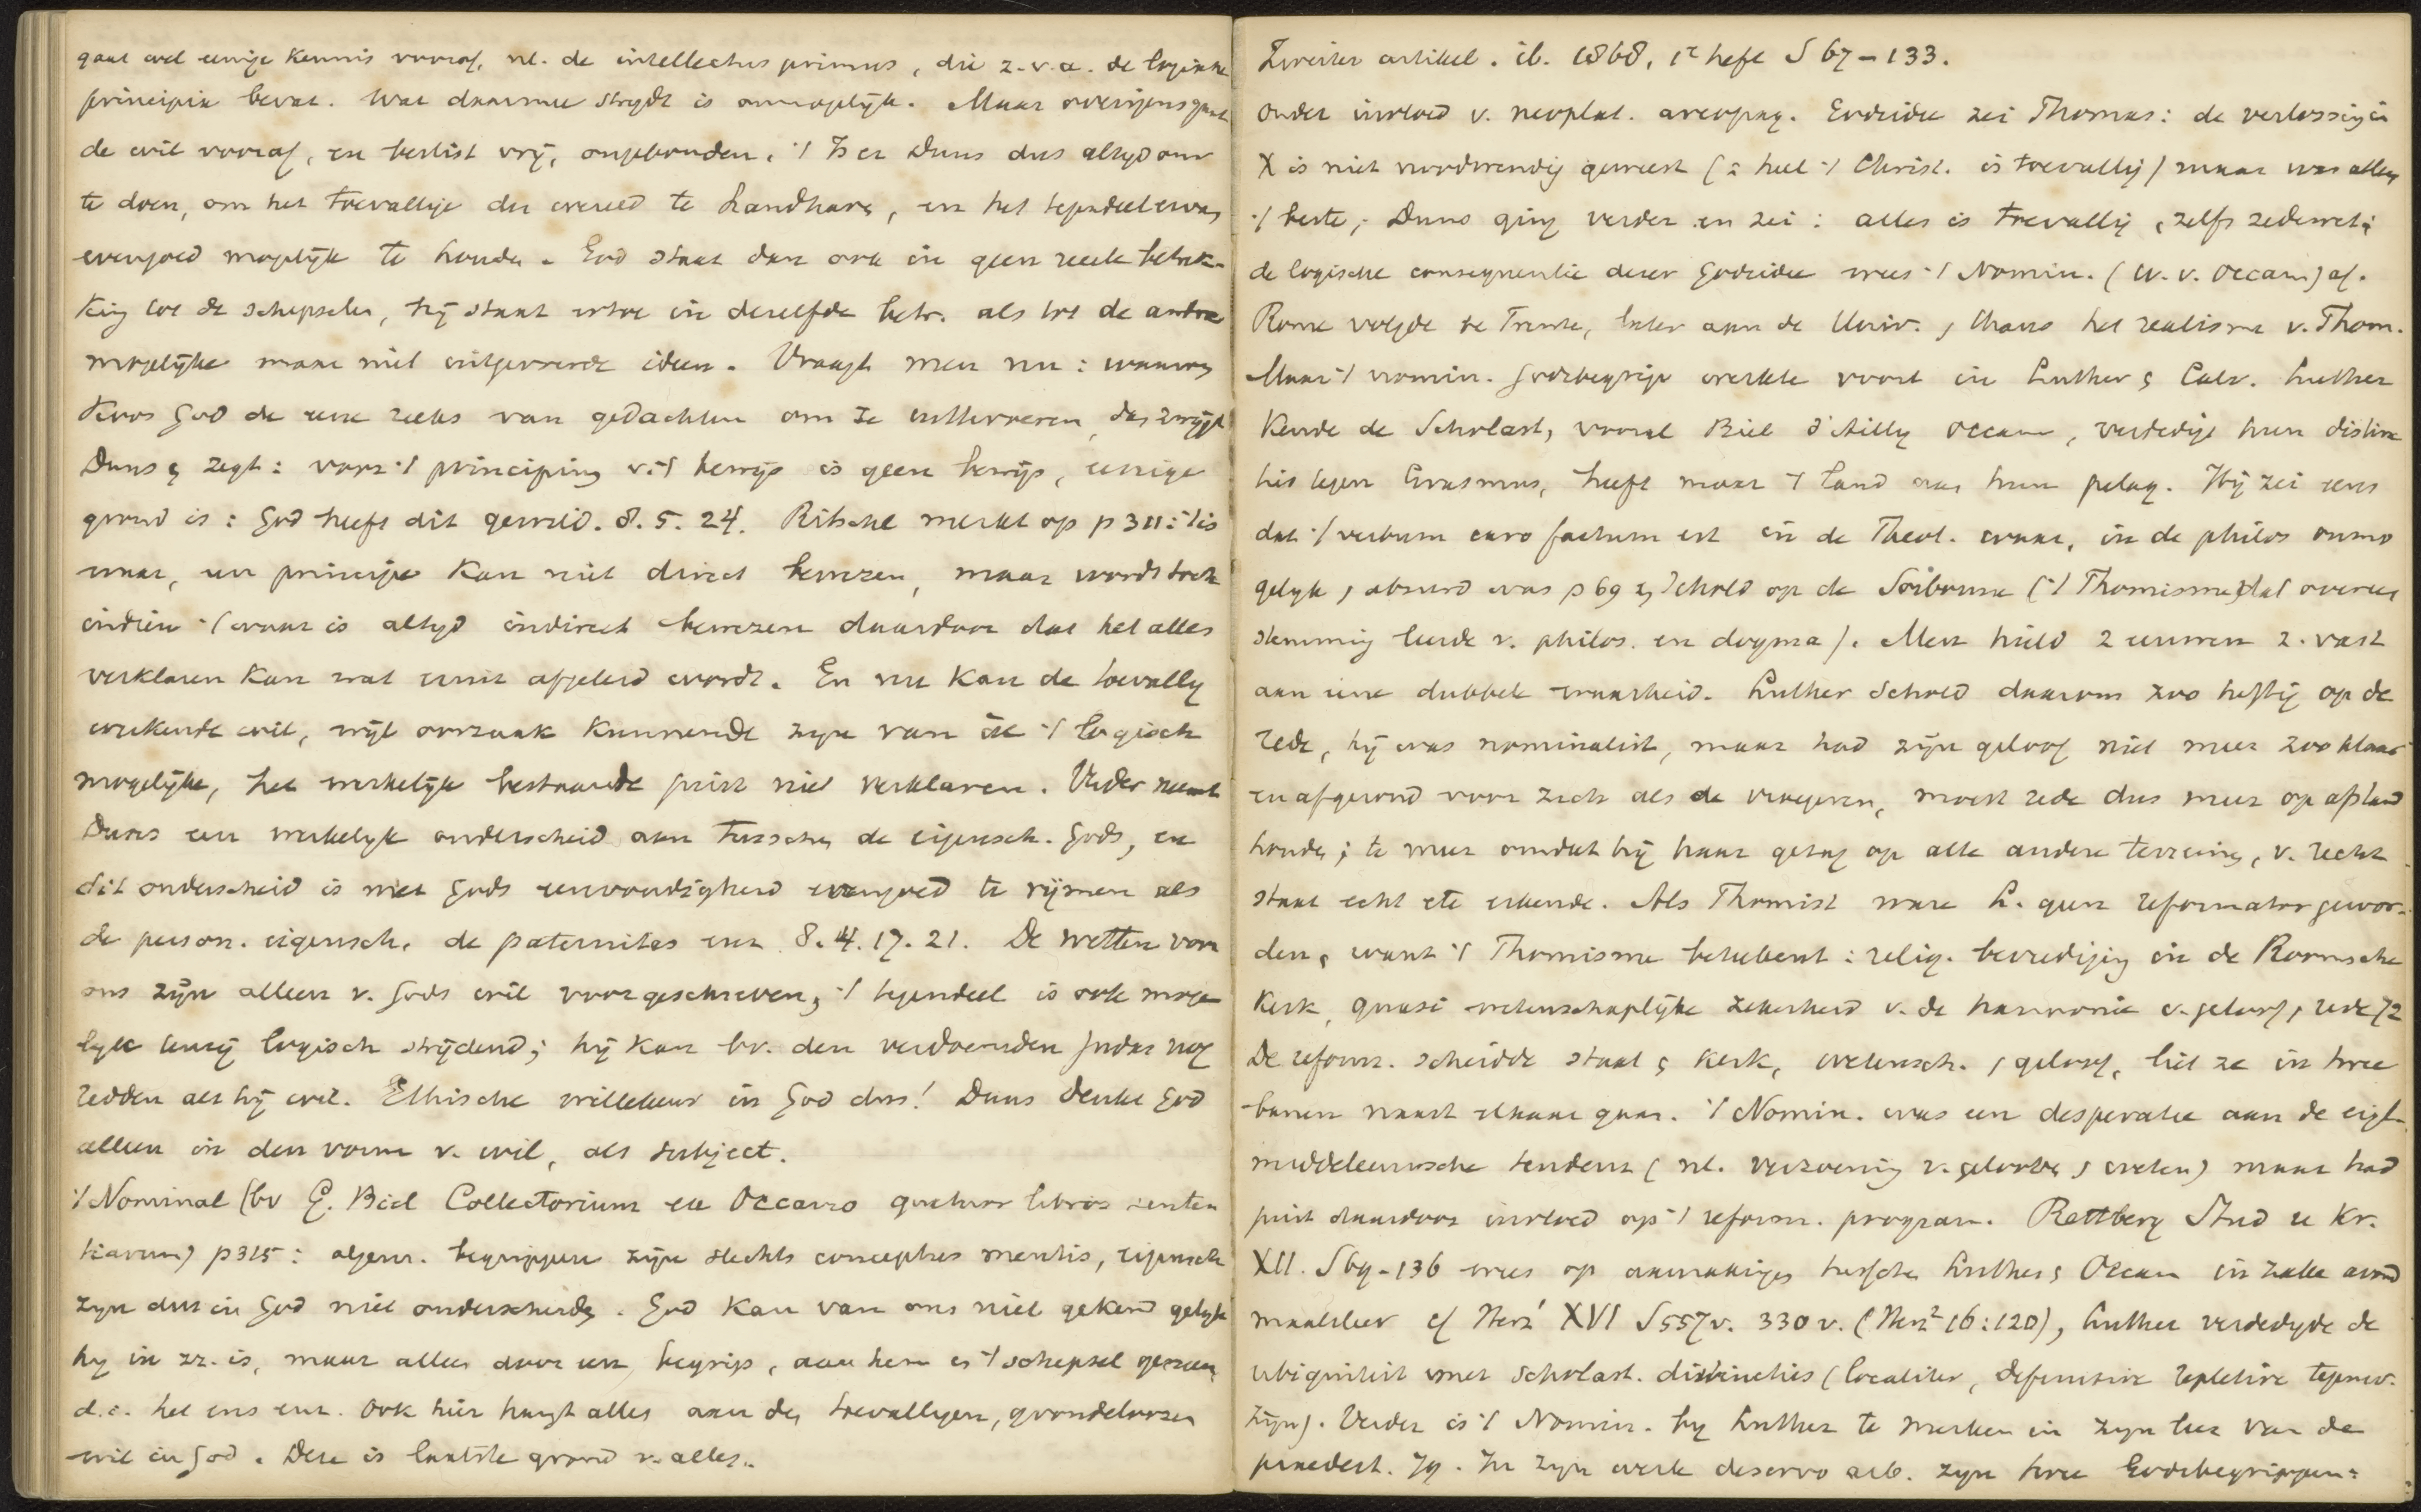 gaat wel eenige kennis vooraf, nl. de intellectus primus, die z.v.a. de logische
principia bevat. Wat daarmee strydt is onmogelyk. Maar overigens gaat
de wil vooraf, en beslist vrij, ongebonden. 't Is er Duns dus altyd om
te doen, om het toevallige der wereld te handhaven, en het tegendeel ervan
evengoed mogelyk te houden. God staat dan ook in geen reele betrek-
king tot de schepselen, hij staat ertoe in dezelfde betr. als tot de andere
mogelijke maar niet uitgevoerde ideen. Vraagt men nu: waarom
koos God de eene reeks van gedachten om ze uittevoeren, dan zwijgt
Duns & zegt: voor 't principium v. 't bewijs is geen bewijs, eenige
grond is: God heeft dit gewild. 8. 5. 24. Ritschl merkt op p 311: 't is
waar, een principe kan niet direct bewezen, maar wordt toch
indien 't waar is altyd indirect bewezen daardoor dat het alles
verklaren kan wat eruit afgeleid wordt. En nu kan de toevallig
werkende wil, wijl oorzaak kunnende zijn van al 't logisch
mogelijke, het werkelijk bestaande juist niet verklaren. Verder neemt
Duns een werkelyk onderscheid aan tusschen de eigensch. Gods, en
dit onderscheid is met Gods eenvoudigheid evengoed te rijmen als
de person. eigensch. de paternitas enz. 8. 4. 17. 21. De wetten voor
ons zijn alleen v. Gods wil voorgeschreven, 't tegendeel is ook moge
lyk tenzij logisch strijdend; hij kan bv. den verdoemden Judas nog
redden als hij wil. Ethische willekeur in God dus! Duns denkt God
alleen in den vorm v. wil, als subject.
't Nominal (bv G. Biel Collectorium ex Occamo quatuor libros senten
tiarum) p 315: algem. begrippen zijn slechts conceptus mentis, eigensch
zyn dus in God niet onderscheiden. God kan van ons niet gekend gelyk
hy in zz. is, maar alleen door een begrip, aan hem en 't schepsel gemeen,
d.i. het ens enz. Ook hier hangt alles aan den toevalligen, grondeloozen
wil in God. Deze is laatste grond v. alles.
Zweiter artikel. ib. 1868, 1e heft S 67-133.
Onder invloed v. neoplat. areopag. Godsidee zei Thomas: de verlossing in
X is niet noodwendig geweest (= heel 't Christ. is toevallig) maar was alleen
't beste; Duns ging verder en zei: alles is toevallig, zelfs zedewet;
de logische consequentie dezer Godsidee wees 't Nomin. (W. v. Occam) af.
Rome volgde te Trente, later aan de Univ., thans het realisme v. Thom.
Maar 't nomin. Godsbegrip werkte voort in Luther & Calv. Luther
kende de Scholast, vooral Biel d'Ailly Occam, verdedigt hun distinc
ties tegen Erasmus, heeft maar 't land aan hun pelag. Hij zei eens
dat 't verbum caro factum est in de Theol. waar, in de philos onmo
gelyk, absurd was p 69 & schold op de Sorbonne ('t Thomisme) dat overeen
stemming leerde v. philos. en dogma). Men hield 2 eeuwen z. vast
aan eene dubbele waarheid. Luther schold daarom zoo heftig op de
rede, hij was nominalist, maar had zijn geloof niet meer zoo klaar
en afgerond voor zich als de vroegeren, moest rede dus meer op afstand
houden; te meer omdat hij haar gezag op alle andere terreinen, v. recht
staat echt etc erkende. Als Thomist ware L. geen reformator gewor-
den, want 't Thomisme beteekent: relig. bevrediging in de Roomsche
kerk, quasi wetenschaplijke zekerheid v. de harmonie v. geloof, rede 72
De reform. scheidde staat & kerk, wetensch., geloof, liet ze in twee
banen naast elkaar gaan. 't Nomin. was een desperatie aan de eigl.
middeleeuwsche tendenz (nl. verzoening v. gelooven, weten) maar had
juist daardoor invloed op 't reform. program. Rettberg Stud u Kr.
XII. S 69-136 wees op aanrakingen tusschen Luther & Occam in zake avond
maalsleer cf Herz' XVI S 557v. 330v. (Herz² 16:120), Luther verdedigde de
ubiquiteit met scholast. distincties (localiter, definitive repletive tegenw.
zijn). Verder is 't Nomin. by Luther te merken in zijn leer van de
praedest. 79. In zijn werk de servo arb. zijn twee Godsbegrippen: